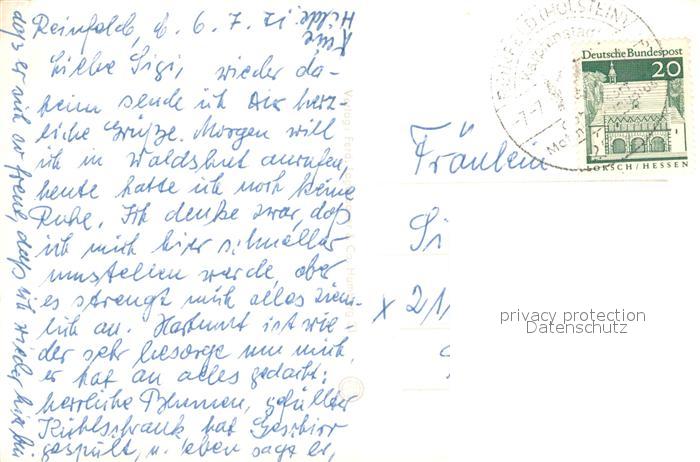 Reinfeld, d. 6. 7. 71
Liebe Sigi, wieder da-
heim sende ich Dir herz-
liche Grüße. Morgen will
ich in Waldshut anrufen,
heute hatte ich noch keine
Ruhe. Ich denke zwar, daß
ich mich hier schneller
umstellen werde, aber
es strengt mich alles ziem-
lich an. Hartmut ist wie-
der sehr besorgt um mich,
er hat an alles gedacht:
herrliche Blumen, gefüllter
Kühlschrank hat Geschirr
gespült, u. eben sagt er,
daß er sich so freue, daß ich wieder hier bin
Deine
Hilde
Fräulein
Si
x 21
Deutsche Bundespost
20
LORSCH/HESSEN
(HOLSTEIN)
-7.-7
privacy protection
Datenschutz